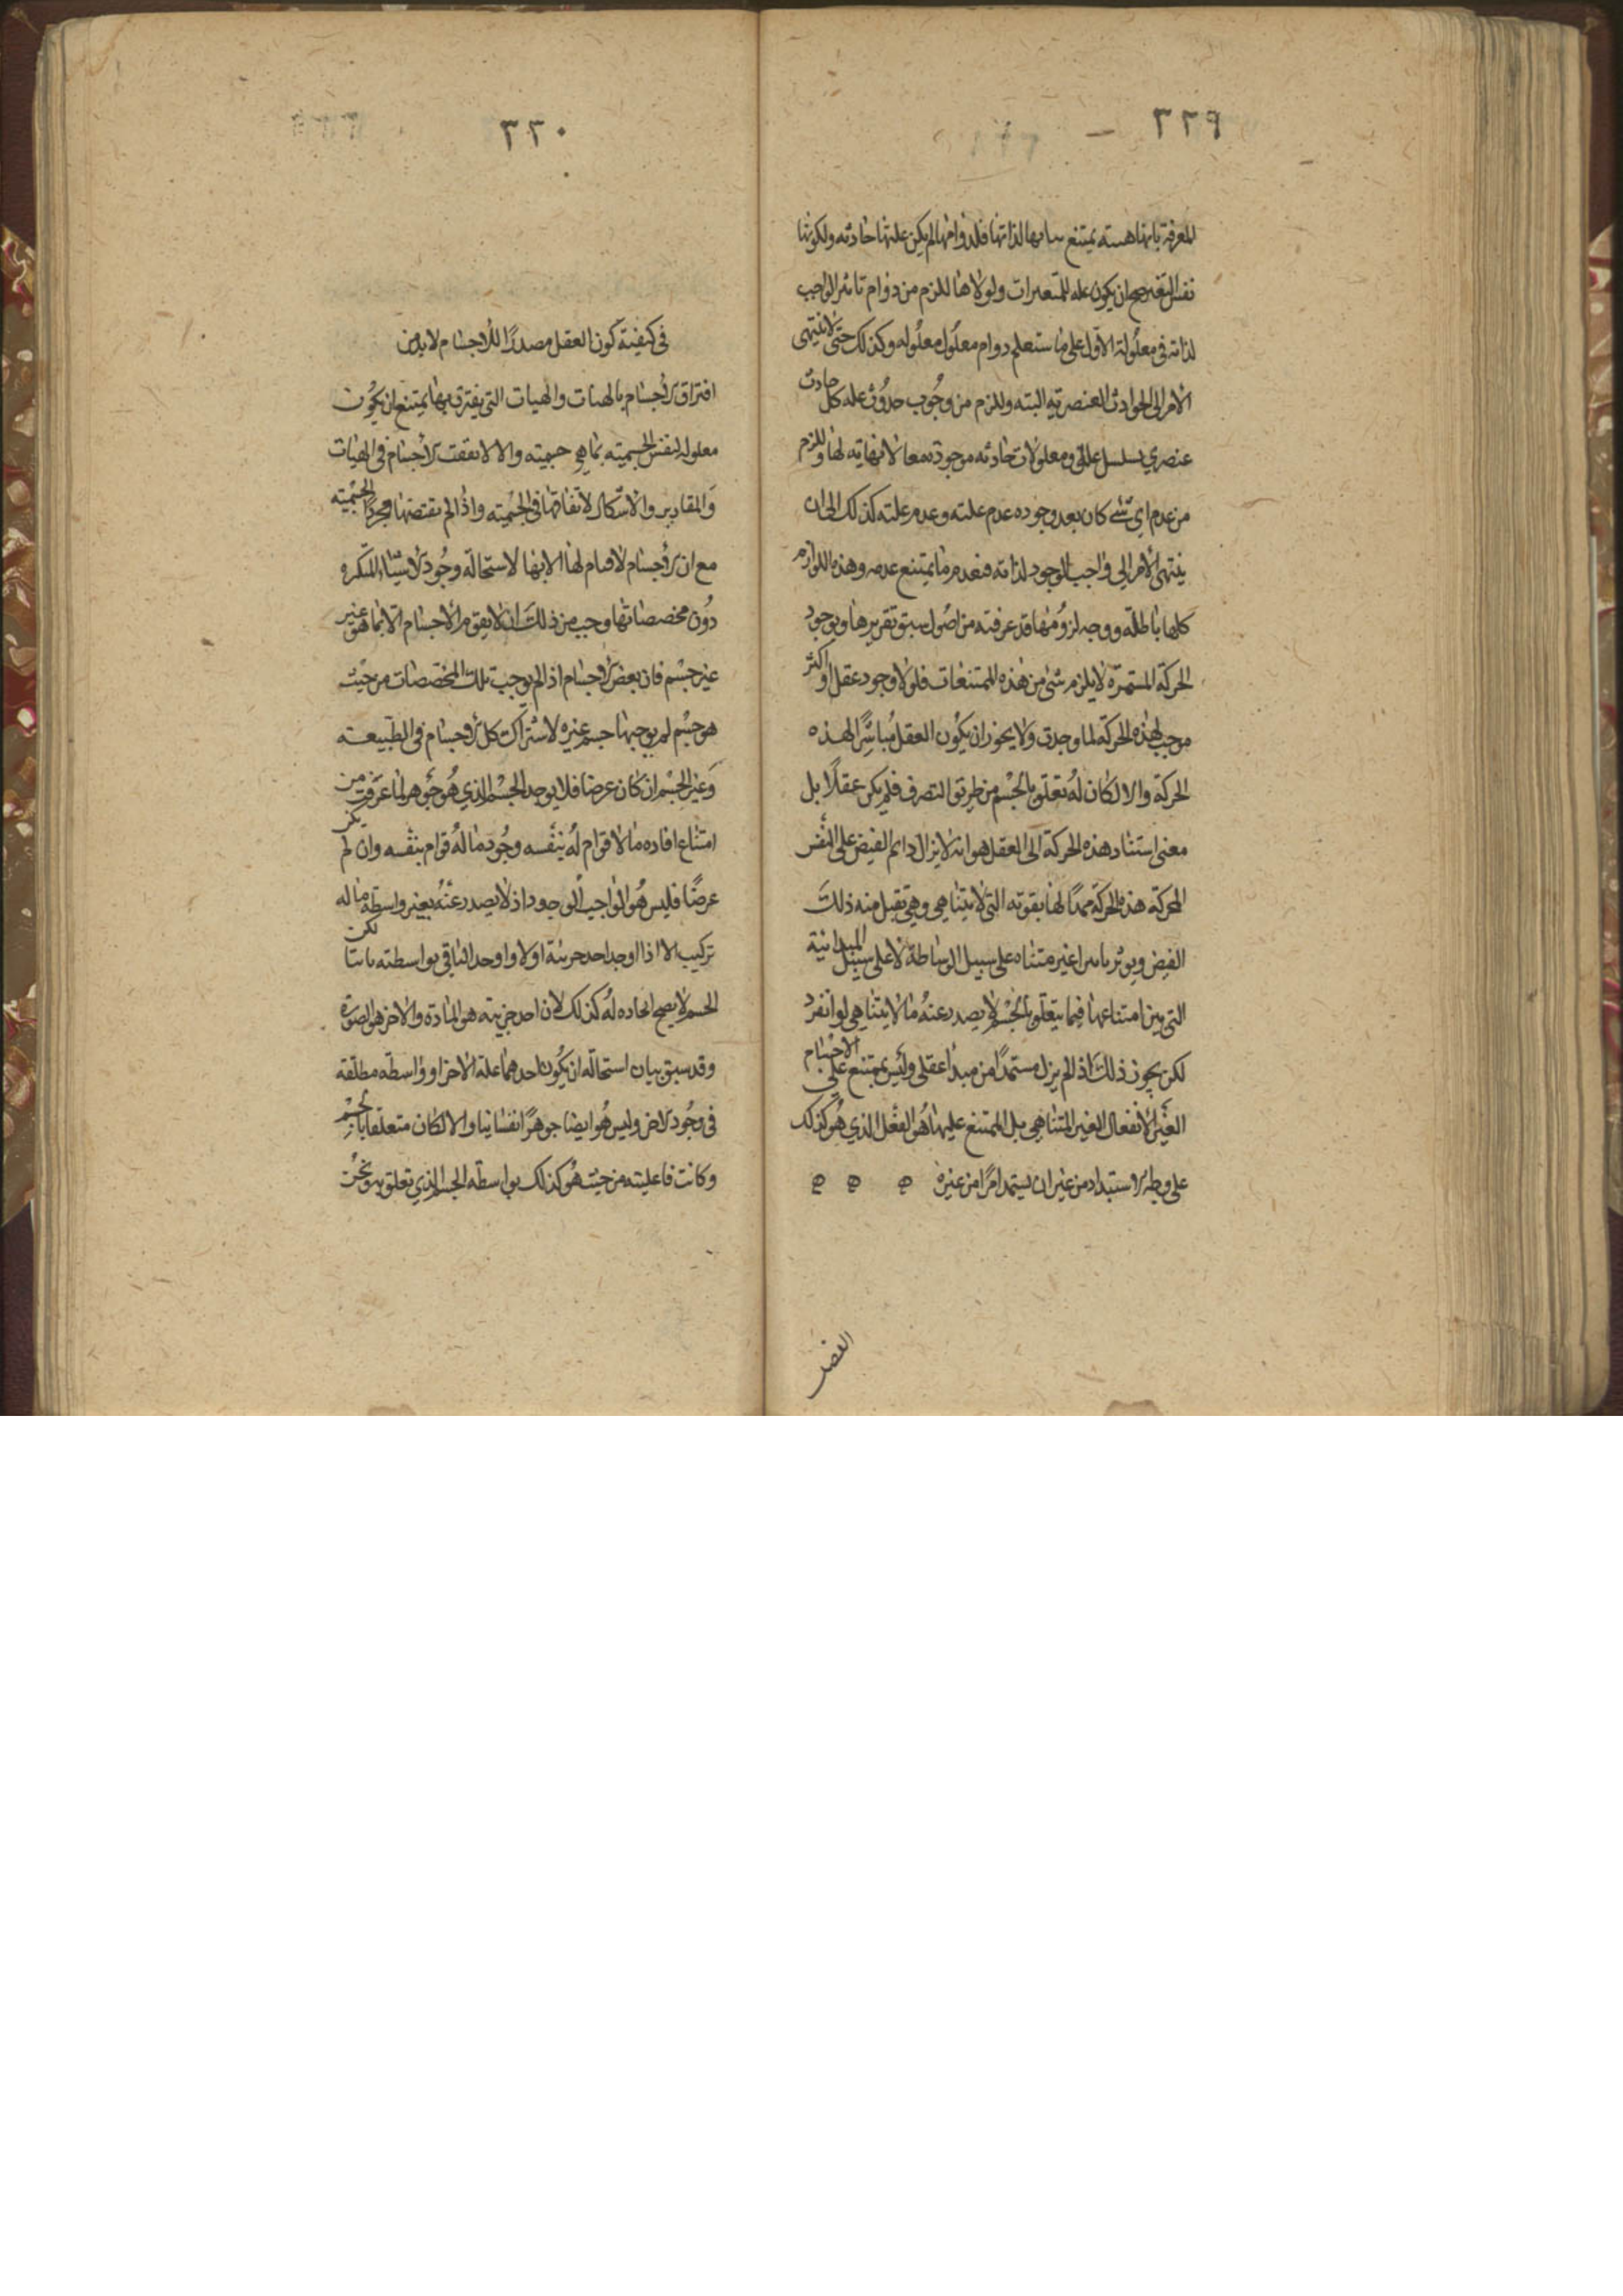 ٣٢٩
المعرفة بانها هيئة يمتنع ثباتها لذاتها فلدوامها لم يكن علتها حادثه ولكونها
نفس التغير صح ان يكون علة للمتغيرات ولولاها للزم من دوام تاثير الواجب
لذاته في معلوله الاول على ما ستعلم دوام معلول معلوله وكذلك حتى لا ينتهي
الامر الى الحوادث العنصريه البته وللزم من وجوب حدوث علة كل حادث
عنصري تسلسل علل ومعلولات حادثه موجودة معا لا نهاية لها وللزم
من عدم اي شي كان بعد وجوده عدم علته وعدم علة علته كذلك الى ان
ينتهي الأمر الى واجب الوجود لذاته فيعدم ما يمتنع عدمه وهذه اللوازم
كلها باطلة ووجه لزومها قد عرفته من اصول سبق تقريرها وبوجود
الحركة المستمرة لا يلزم شئ من هذه الممتنعات فلولا وجود عقل او اكثر
موجب لهذه الحركة لما وجدت ولا يجوز ان يكون العقل مباشرًا لهذه
الحركة والا لكان له تعلق بالجسم من طريق التصرف فلم يكن عقلًا بل
معنى استناد هذه الحركة الى العقل هو انه لا يزال دائم الفيض على النفس
المحركة هذه الحركة ممدًا لها بقوته التي لا يتناهى وهي تقبل منه ذلك
الفيض ويوثر تاثيرا غير متناه على سبيل الوساطة لا على سبيل المبدائية
التي بين امتناعها فيما يتعلق بالجسم لا يصدر عنه ما لا يتناهى لو انفرد
لكن يجوز ذلك اذ الم يزل مستمدًا من مبدا عقلي وليس يمتنع على الاجسام
الغير الانفعال الغير المتناهي بل الممتنع عليها هو الفعل الذي هو كذلك
على وجه الاستبداد من غير ان يستمد امرًا من غيره
الفصل
٣٣٠
في كيفية كون العقل مصدرًا للأجسام لا بد من
افتراق الاجسام بالهيات والهيات التي يفترق بها يمتنع ان يكون
معلوله لنفس الجسمية بما هي جسميته والا لاتفقت الاجسام في الهيات
والمقادير والاشكال لاتفاقها في الجسمية واذا لم يقتضها مجرد الجسمية
مع ان الاجسام لا قيام لها الا بها لاستحالة وجود الاشياء المتكثره
دون مخصصاتها وجب من ذلك ان لا يقوم الاجسام الا بما هو غير
غير جسم فان بعض الاجسام اذ الم يوجب تلك المخصصات من حيث
هو جسم لم يوجبها جسم غيره لاشتراك كل الاجسام في الطبيعة
وغير الجسم ان كان عرضا فلا يوجد الجسم الذي هو جوهر لما عرفت من
امتناع افاده ما لا قوام له بنفسه وجود ما له قوام بنفسه وان لم يكن
عرضًا فليس هو الواجب الوجود اذ لا يصدر عنه بغير واسطة ما له
تركيب الا اذا اوجد احد جزئيه اولا واوجد الباقي بواسطته لكن
الجسم لا يصح ايجاده له كذلك لان احد جزئيه هو المادة والاخر هو الصورة
وقد سبق بيان استحالة ان يكون احدهما علة الاخر او واسطه مطلقة
في وجود الاخر وليس هو ايضا جوهرًا نفسانيا والا لكان متعلقا بالجسم
وكانت فاعليته من حيث هو كذلك بواسطه الجسم الذي تعلق به ونحن